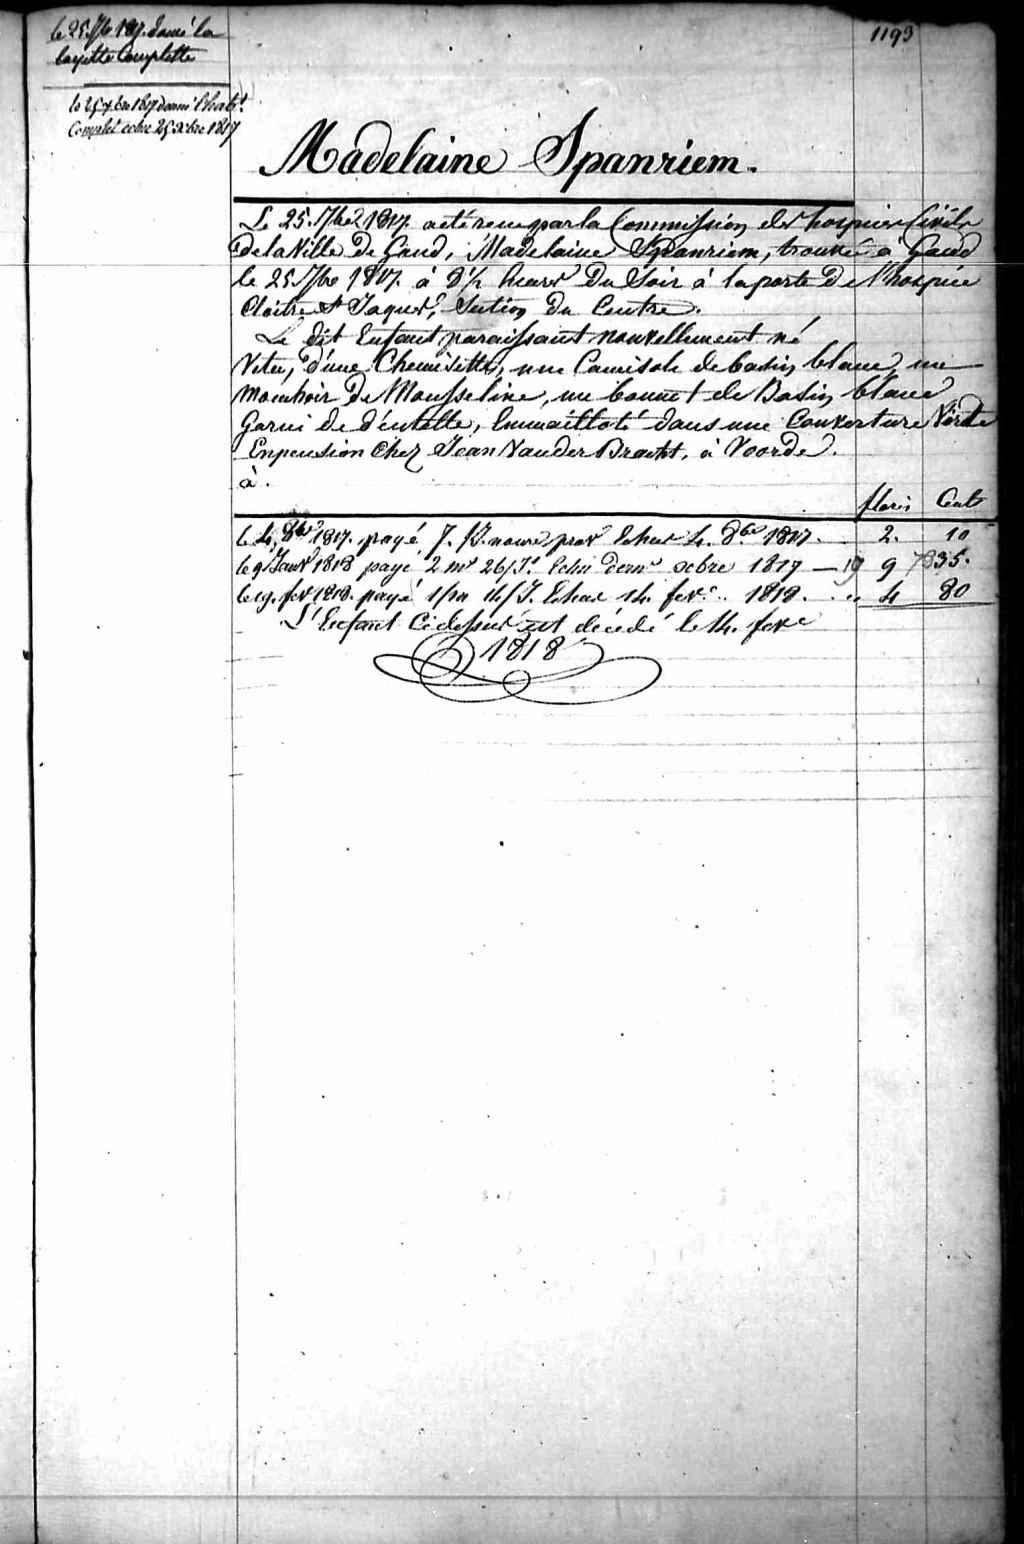 1193
le 25. 7bre 1817. donné la
layette Complette
le 25 xbre 1817 donné l'habt.
Complet echu 25 Xbre 1817
Madelaine Spanriem.
Le 25. 7bre 1817. a été reçu par la Commission des hospices Civils
de la Ville de Gand, Madelaine Spanriem, trouvé a Gand
le 25 7bre 1817. à 8½ heures Du Soir à la porte De l'hospice
Cloitre St Jaques, Section Du Centre.
Le dit Enfant paraissant nouvellement né
Vetu, d'une Chemisette, une Camisole de basin blanc, un
mouchoir De Mousseline, un bonnet de Basin blanc
garni de déntelle, Emmailloté dans une Couverture Verte
En pension Chez Jean Vander Bracht, à Voorde.
à.
floris Cent
le 4. 8bre 1817. payé 7. J. nourr prov Echus 4. 8bre 1817. 2. 10
le 9 Janvr 1818 payé 2 ms 26/Js. Echu dernr xcbre 1817 — 9 35.
le 19. fevr 1818. payé 1/m 14/J. Echue 14. fevr. 1818. 4 80
L'Enfant Cidessus est décédé le 14. fevr
1818